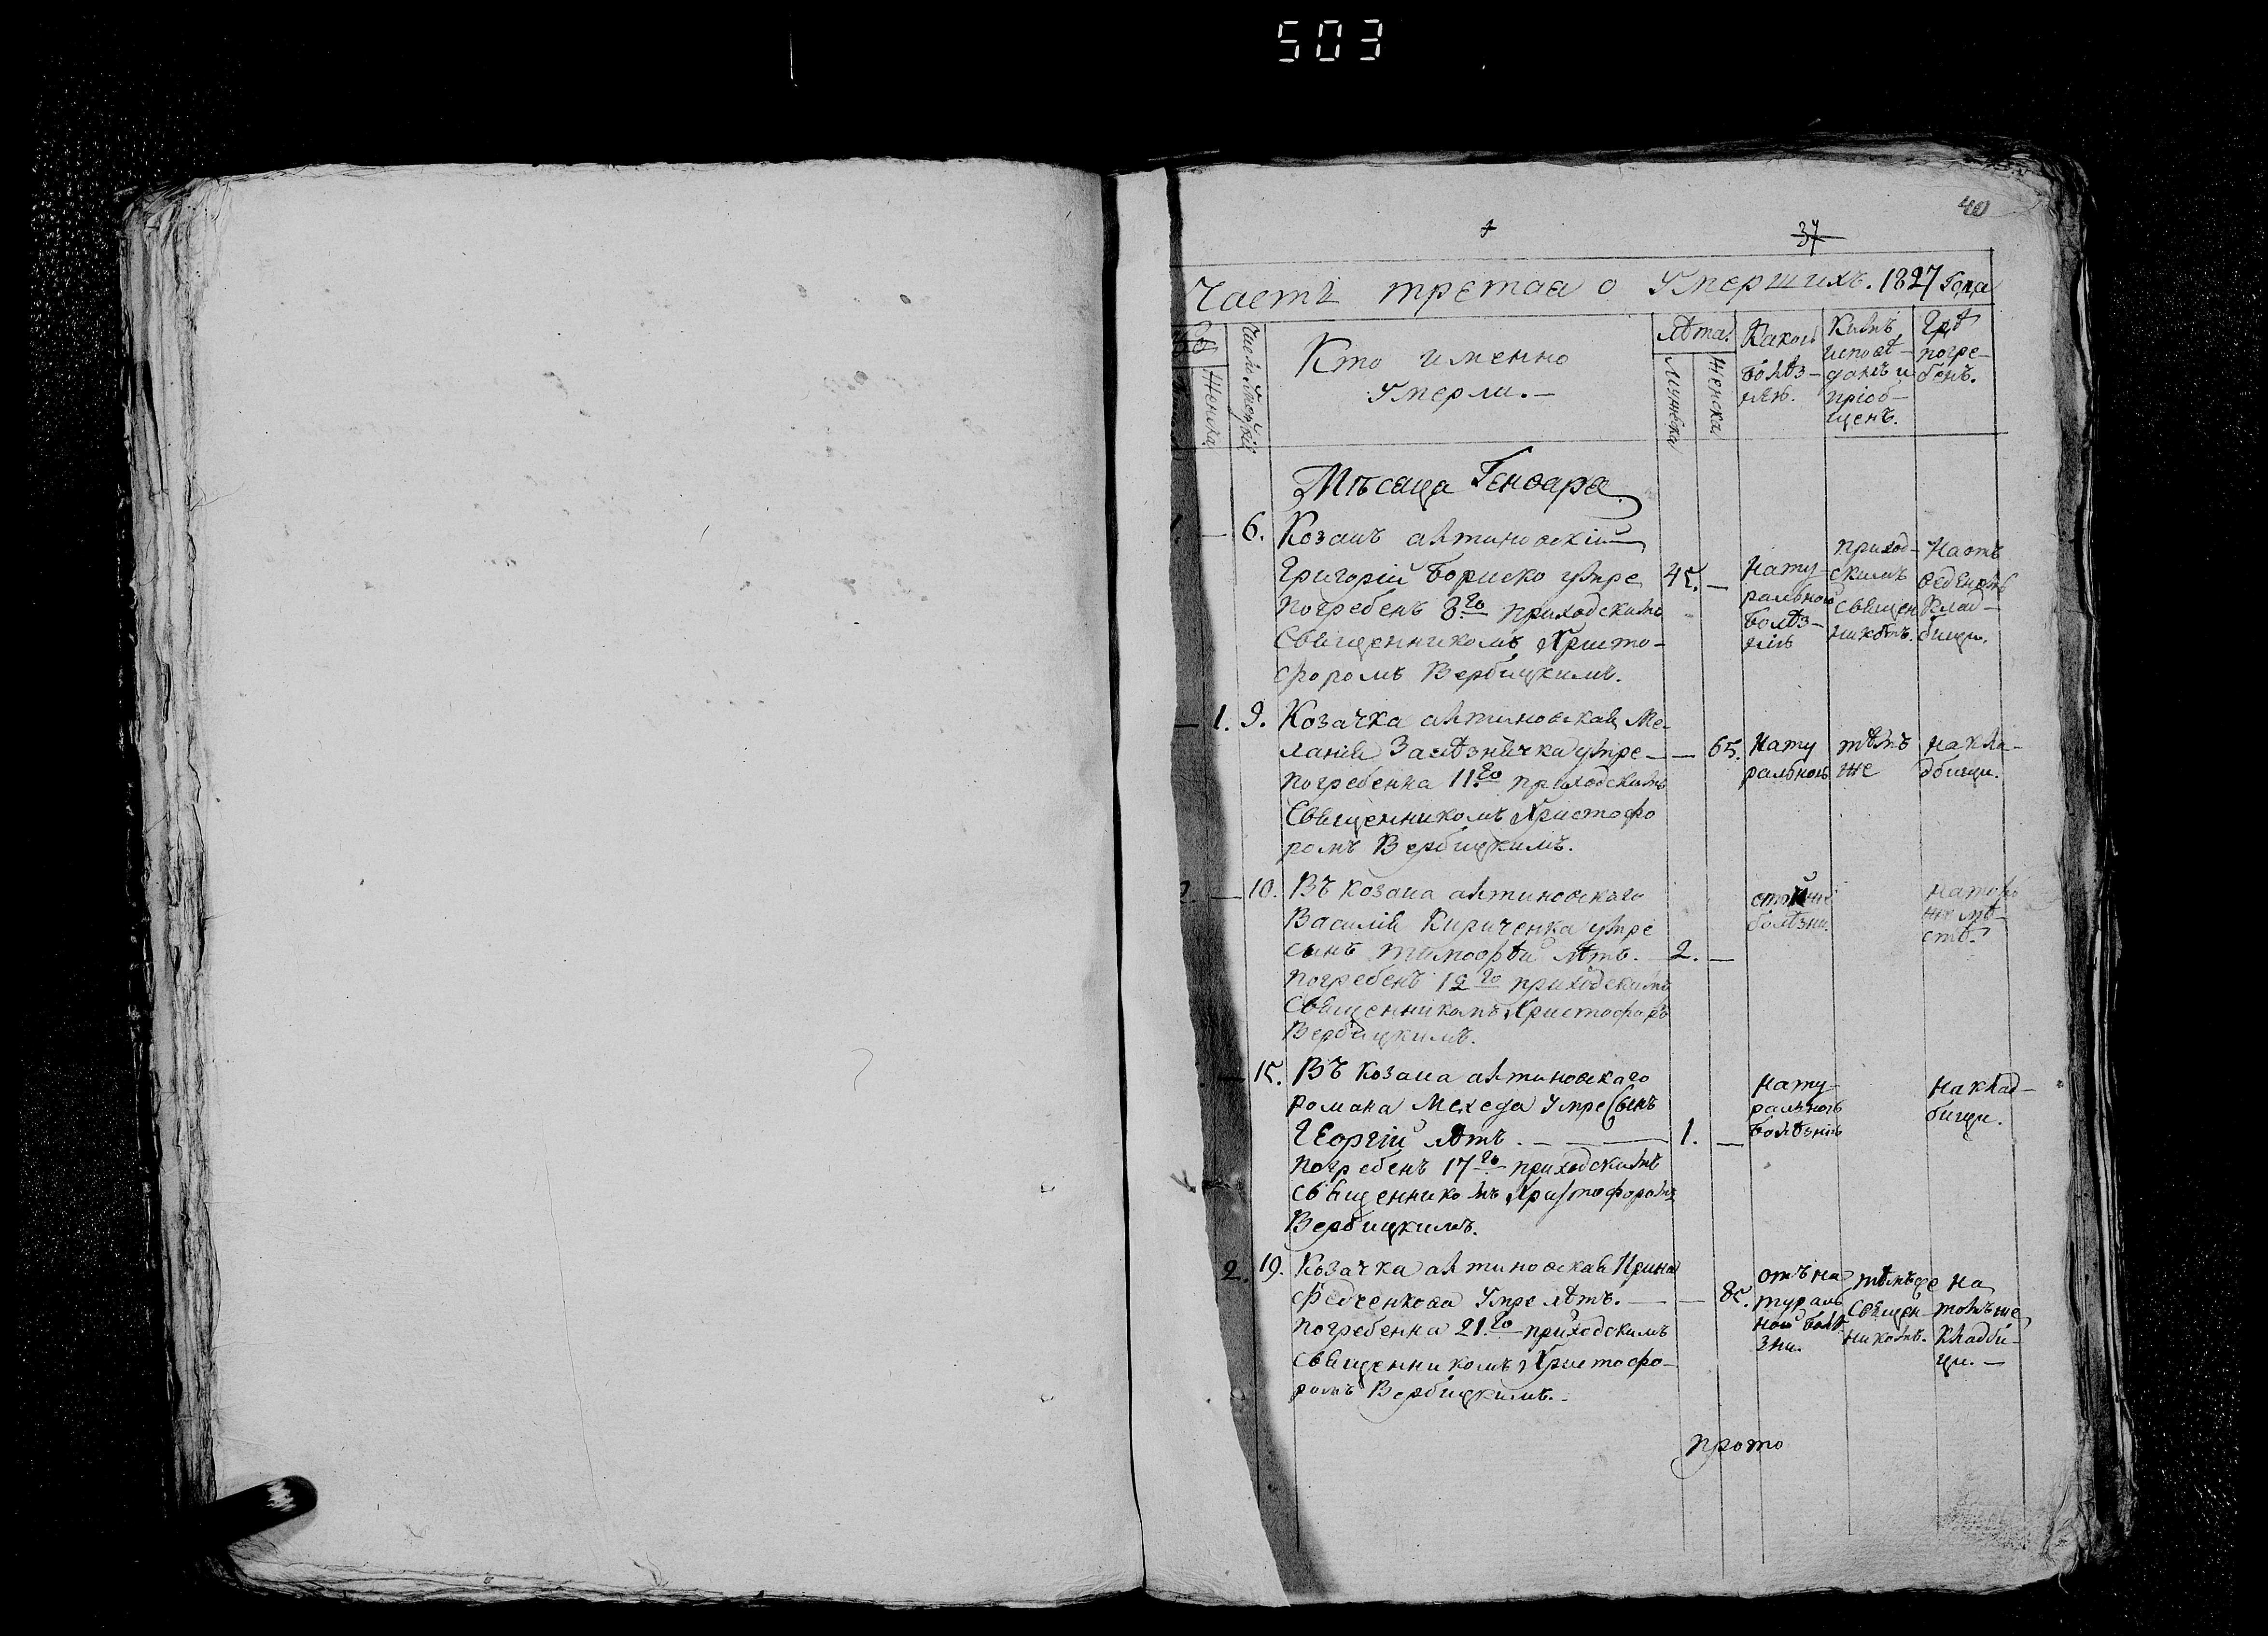 503
40
37
Часть третая о Умершихъ. 1827 Года
Женска
Кто именно
Умерли. —
Лѣта.
Мужеска
Женска
Какою
болѣз-
нію.
Кимъ
исповѣ-
данъ и
пріоб-
щенъ.
Гдѣ
погре-
бенъ.
Мѣсяца Генваря
— 6. Козакъ алтиновскій
Григорій Бориско умре 45. —
погребенъ 8го приходскимъ
Священникомъ Христо-
форомъ Вербицкимъ.
Нату-
ральною
болѣз-
нію
приход-
скимъ
священ
никомъ.
На отъ
веденомъ
клад-
бищи.
— 1. 9. Козачка алтиновская Ме-
ланія Залѣзнячка умре — — 65.
погребенна 11го приходскимъ
Священникомъ Христофо
ромъ Вербицкимъ.
Нату
ральною
тѣмъ
же
на кла-
дбищи.
2 — 10. Въ козака алтиновскаго
Василія Кириченка умре
сынъ тимофѣй лѣтъ. — 2. —
погребенъ 12го приходскимъ
Священникомъ Христофоръ
Вербицкимъ.
болѣзни.
на томъ
же мѣ-
стѣ.
— 15. Въ козака алтиновскаго
романа Мехеда Умре Сынъ
Георгій лѣтъ. — — 1. —
погребенъ 17го приходскимъ
священникомъ Христофоромъ
Вербицкимъ.
нату-
ральною
болѣзнію
на клад-
бищи.
2. 19. Козачка алтиновская Ирина
Федченкова Умре лѣтъ. — — 85.
погребенна 21го приходскимъ
священникомъ Христофо-
ромъ Вербицкимъ.
отъ на
тураль
ной болѣ
зни.
тѣмъже
священ
никомъ.
на
томъже
кладби-
щи. —
прото